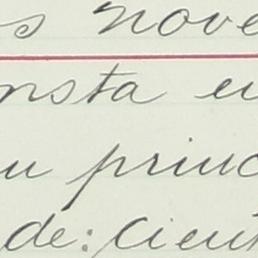 s nove
nsta eu
u princ
de: cient